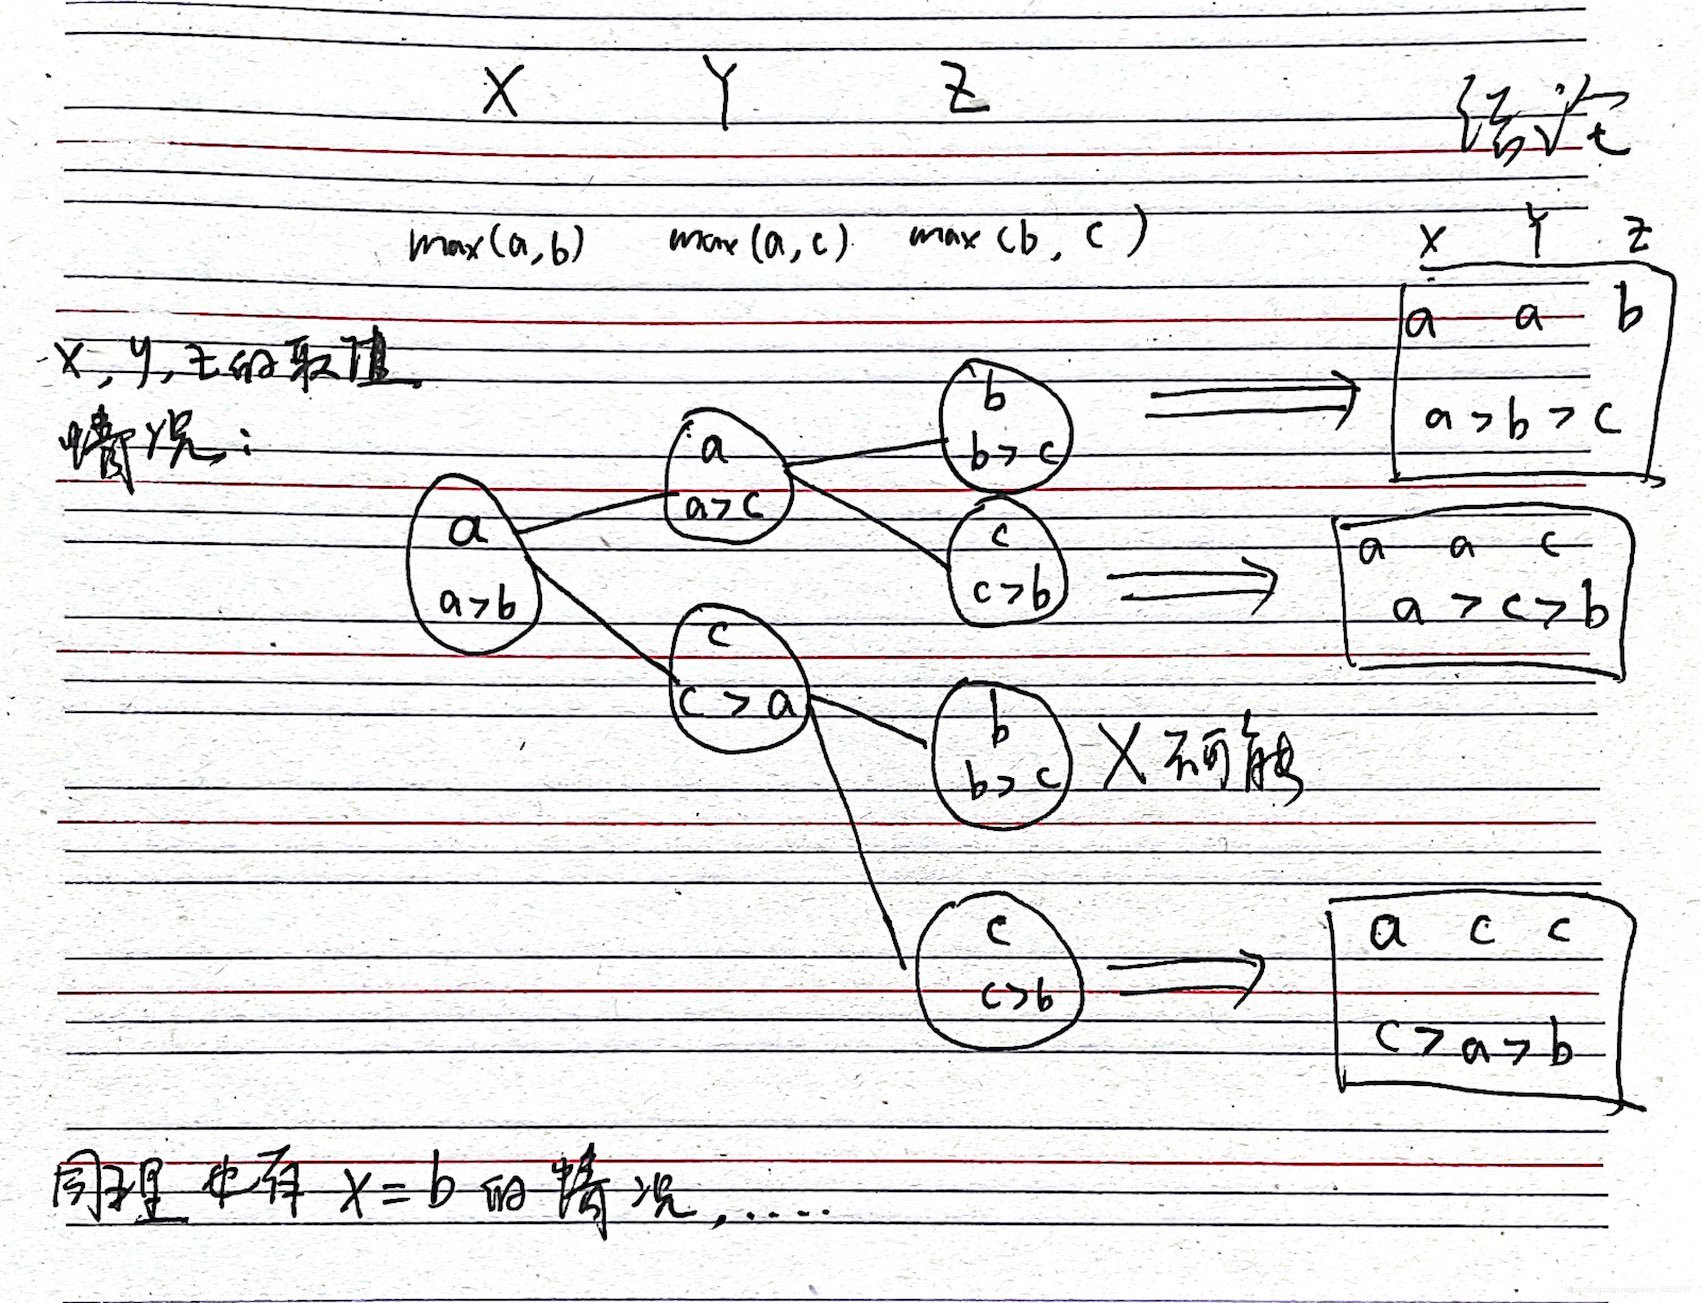 X Y Z
结论
max(a,b) max(a,c) max(b,c)
X Y Z
a a b
a>b>c
X,Y,Z的取值
情况:
a
a>b
a
a>c
b
b>c
c
c>b
a a c
a>c>b
c
c>a
b
b>c
X 不可能
c
c>b
a c c
c>a>b
同理也有X=b的情况,.....